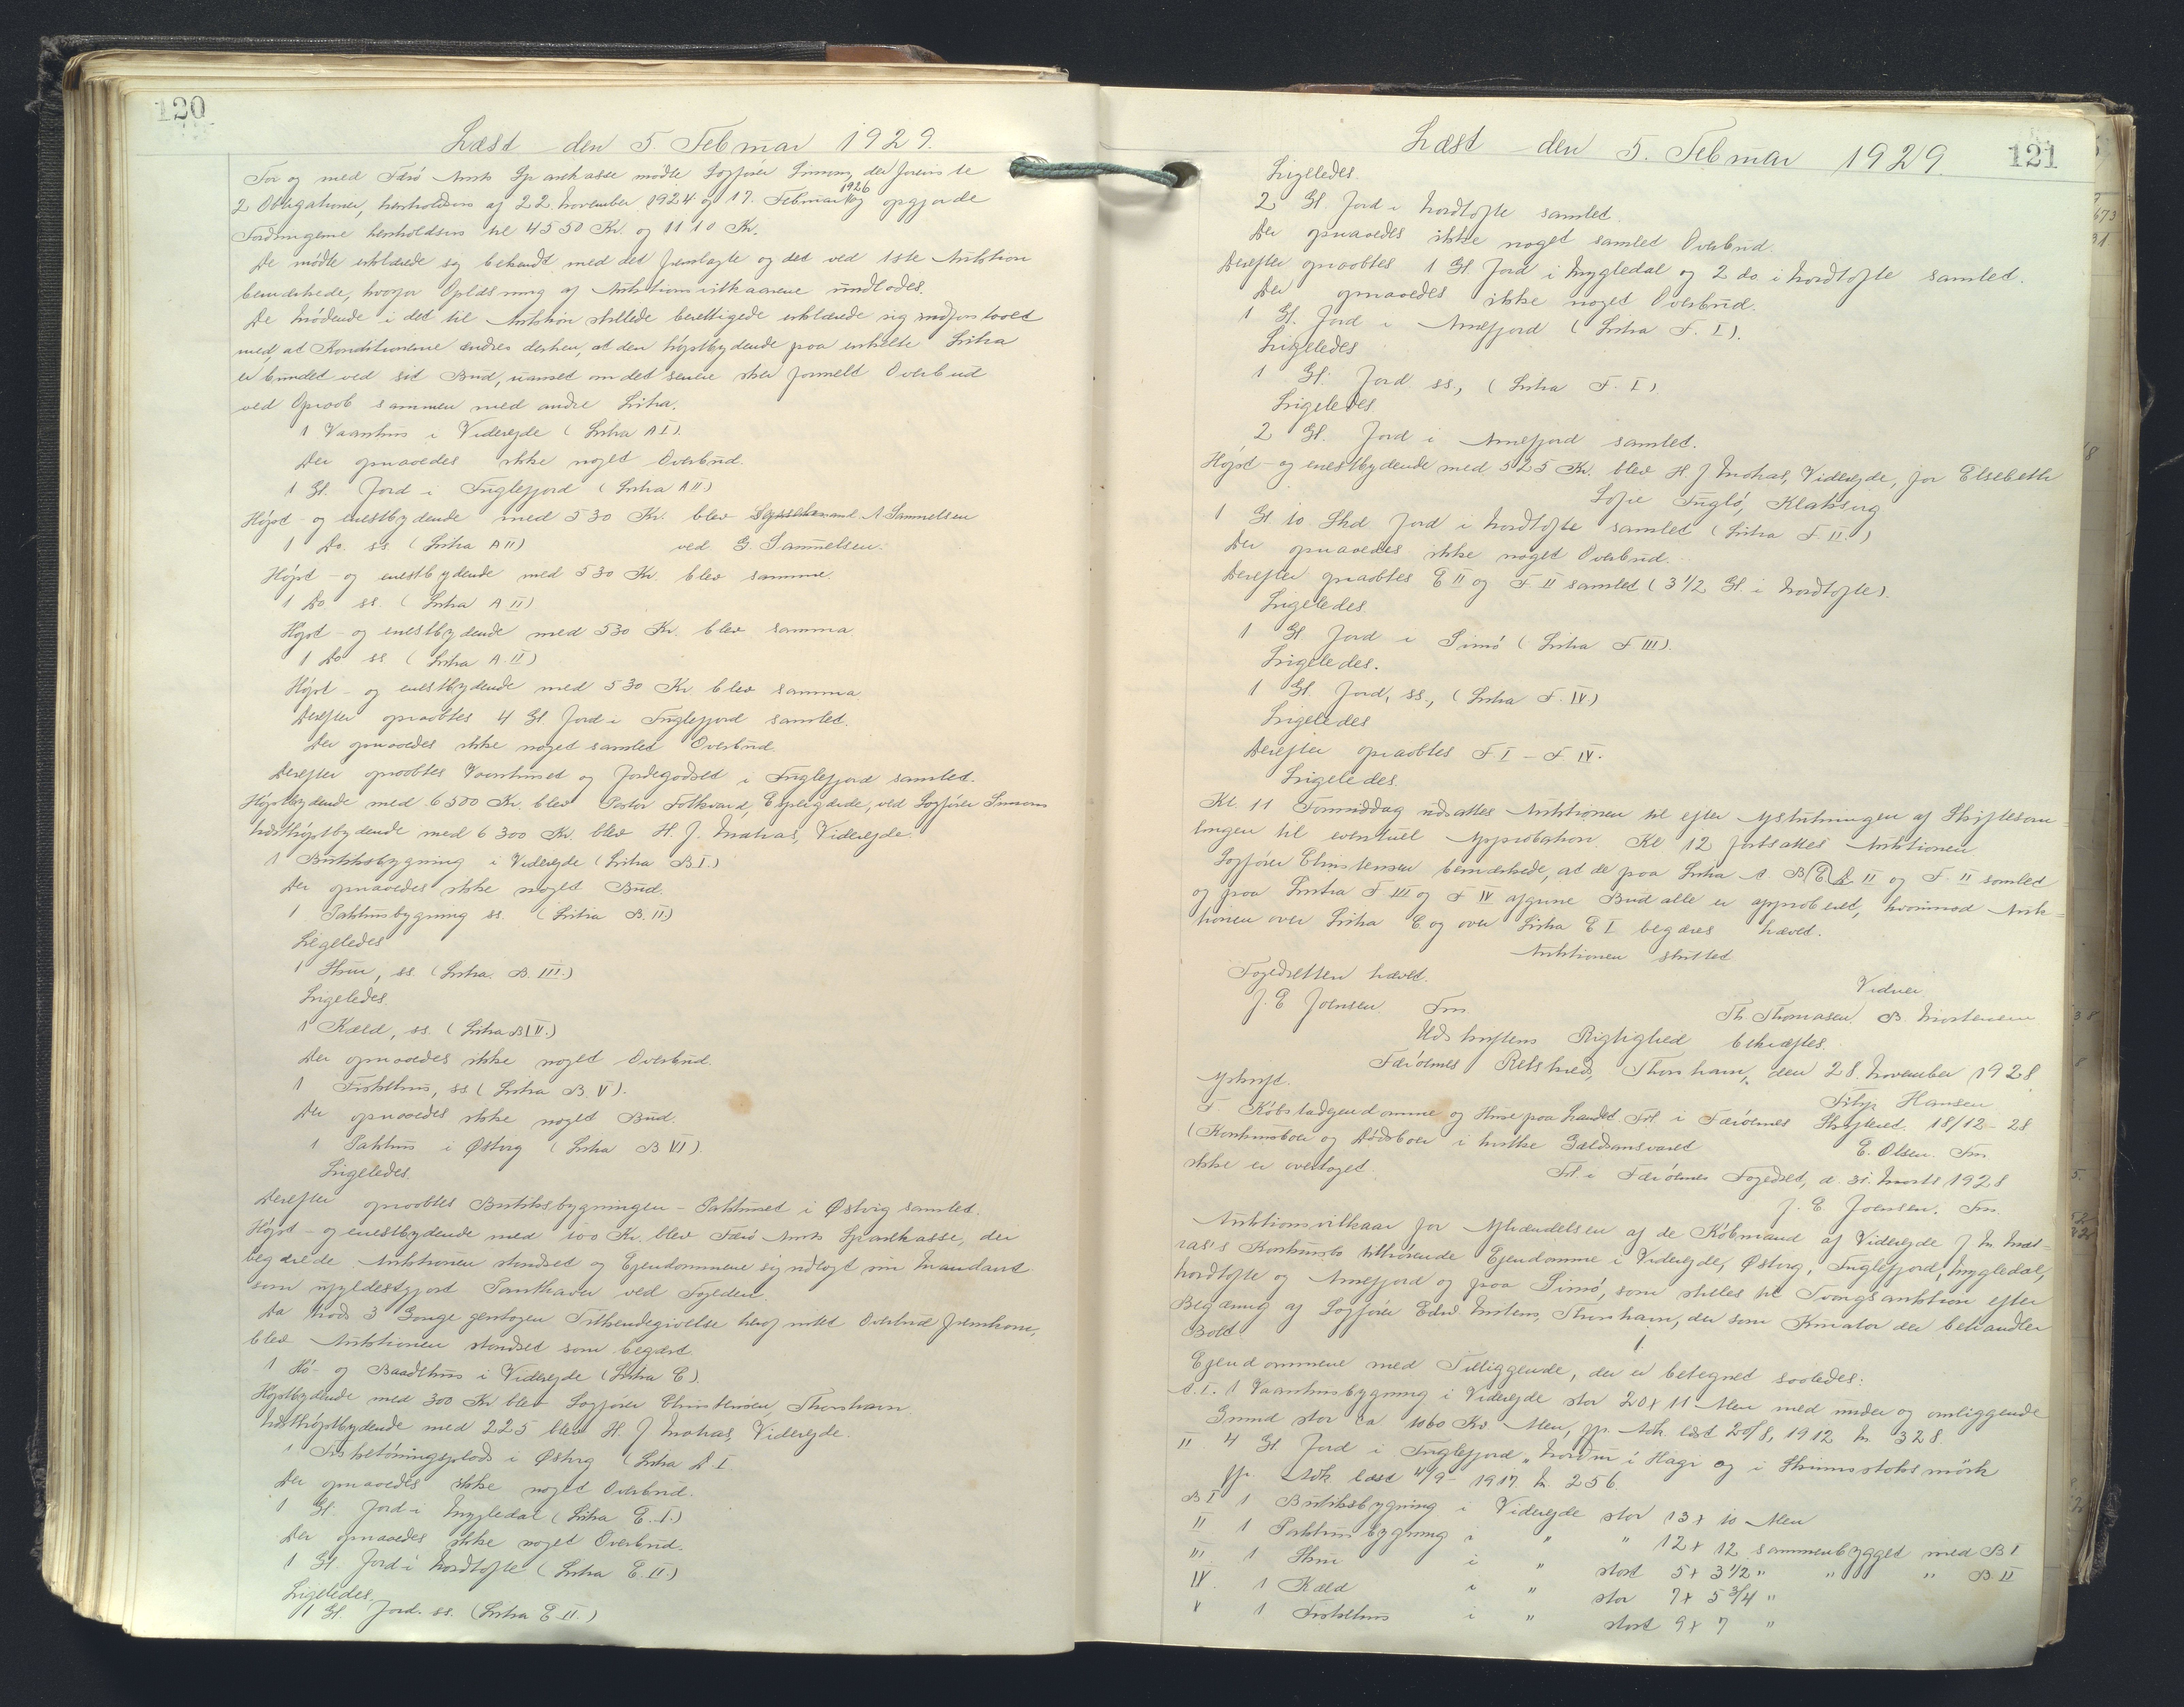 120
Læst den 5. Februar 1929.
For og med Færø Amts Sparekasse mødte Sagfører Simony der foreviste
2 Obligationer, henholdsvis af 22 November 1924 og 17. Februar 1926 og opgjorde
Fordringerne henholdsvis til 4550 Kr. og 1110 Kr.
De mødte erklærede sig bekendt med det fremlagte og det ved 1ste Auktion
bemærkede, hvorfor Oplæsning af Auktionsvilkaarene undlodes.
De Mødende i det til Auktion stillede berettigede erklærede sig indforstaaet
med, at Konditionerne ændres derhen, at den højstbydende paa enkelte Litra
er bundet ved sit Bud, uanset om det senere sker formelt Overbud
ved Opraab sammen med andre Litra.
1 Vaanhus i Viderejde (Litra A I).
Der opnaaedes ikke noget Overbud.
1 Gl. Jord i Fuglefjord (Litra A II)
Højst- og enestbydende med 530 Kr. blev Sysselmand A Samuelsen
1 Do. ss. (Litra A II) ved G. Samuelsen.
Højst- og enestbydende med 530 Kr. blev samme.
1 Do ss. (Litra A II)
Højst- og enestbydende med 530 Kr. blev samma.
1 Do ss (Litra A. II)
Højst- og enestbydende med 530 Kr blev samma.
Derefter opraabtes 4 Gl. Jord i Fuglefjord samlet.
Der opnaaedes ikke noget samlet Overbud.
Derefter opraabtes Vaanhuset og Jordegodset i Fuglefjord samlet.
Højstbydende med 6500 Kr. blev Pastor Folkvard, Espergærde, ved Sagfører Simony
Næsthøjstbydende med 6300 Kr. blev H. J. Matras, Viderejde.
1 Butiksbygning i Viderejde (Litra B I.)
Der opnaaedes ikke noget Bud.
1 Pakhusbygning ss. (Litra B. II.)
Ligeledes
1 Skur, ss. (Litra. B. III.)
Ligeledes.
1 Kæld, ss. (Litra B IV.)
Der opnaaedes ikke noget Overbud.
1 Fiskehus, ss (Litra B. V).
Der opnaaedes ikke noget Bud.
1 Pakhus i Østvig (Litra B VI).
Ligeledes.
Derefter opraabtes Butiksbygningen - Pakhuset i Østvig samlet.
Højst- og enestbydende med 100 Kr. blev Færø Amts Sparekasse, der
begærede Auktionen standset og Ejendommene sig udlagt sin Mandant
som ufyldestgjort Panthaver ved Fogeden.
Da trods 3 Gange gentagen Tilkendegivelse heraf intet Overbud fremkom,
blev Auktionen standset som begært.
1 Hø- og Baadehus i Viderejde (Litra C).
Højstbydende med 300 Kr blev Sagfører Christensen, Thorshavn.
Næsthøjstbydende med 225 blev H. J Matras, Viderejde.
1 Fisketørringsplads i Østvig (Litra D. I
Der opnaaedes ikke noget Overbud.
1 Gl. Jord i Mygledal (Litra E. I.)
Der opnaaedes ikke noget Overbud.
1 Gl. Jord i Nordtofte (Litra E. II.)
Ligeledes.
1 Gl. Jord. ss. (Litra E. II.)
121
Læst den 5. Februar 1929.
Ligeledes.
2 Gl. Jord i Nordtofte samlet.
Der opnaaedes ikke noget samlet Overbud.
Derefter opraabtes 1 Gl. Jord i Mygledal og 2 do i Nordtofte samlet.
Der opnaaedes ikke noget Overbud.
1 Gl. Jord i Arnefjord (Litra F. I).
Ligeledes
1 Gl. Jord ss, (Litra F. I)
Ligeledes.
2 Gl. Jord i Arnefjord samlet.
Højst- og enestbydende med 525 Kr. blev H J Matras, Viderejde, for Elsebeth
Sofie Fuglø, Klaksvig
1 Gl 10 Skd Jord i Nordtofte samlet (Litra F. II.)
Der opnaaedes ikke noget Overbud.
Derefter opraabtes E II og F. II samlet (3 1/2 Gl. i Nordtofte).
Ligeledes
1 Gl Jord i Svinø (Litra F III).
Ligeledes.
1 Gl. Jord, ss., (Litra F. IV)
Ligeledes
Derefter opraabtes F I - F IV.
Ligeledes.
Kl. 11 Formiddag udsattes Auktionen til efter Afslutningen af Skiftesam-
lingen til eventuel Approbation. Kl 12 fortsattes Auktionen
Sagfører Christensen bemærkede, at de paa Litra A B (E) D. II og F. II samlet
og paa Litra F III og F IV afgivne Bud alle er approberet, hvorimod Auk-
tionen over Litra C og over Litra E I begæres hævet.
Auktionen sluttet
Fogedretten hævet.
Vidner
J. E Joensen. Fm.
Th. Thomasen. B. Mortensen
Udskriftens Rigtighed bekræftes.
Færøernes Retskreds, Thorshavn, den 28. November 1928.
Afskrift.
Filip Hansen
F Købstadejendomme og Huse paa Landet Frl. i Færøernes Skifteret. 18/12-28
(Konkursboer og Dødsboer i hvilke Gældsansvaret
E. Olsen. Fm
ikke er overtaget.
Frl. i Færøernes Fogedret, d. 31. Marts 1928
J. E. Joensen. Fm.
Auktionsvilkaar for Afhændelsen af de Købmand af Viderejde J M. Mat-
ras's Konkursbo tilhørende Ejendomme i Viderejde, Østvig, Fuglefjord, Mygledal,
Nordtofte og Arnefjord og paa Svinø, som stilles til Tvangsauktion efter
Begæring af Sagfører Edw. Mitens, Thorshavn, der som Kurator der behandler
Boet.
1.
Ejendommene med Tilliggende, der er betegnet saaledes:
A. I. 1 Vaanhusbygning i Viderejde stor 20 x 11 Alen med under og omliggende
Grund stor ca 1060 Kv Alen, jfr. Adk. læst 20/8, 1912 Nr 328.
II 4 Gl. Jord i Fuglefjord „Norður í Hagi og i Skinusstoks mörk
jfr. Adk læst 4/9- 1917 Nr. 256.
B I 1 Butiksbygning i Viderejde stor 13 x 10 Alen
II 1 Pakhusbygning i " " 12 x 12 sammenbygget med B I
III 1 Skur i " stort 5 x 3 1/2 " " " B. II
IV. 1 Kæld i " stor 7 x 5 3/4 "
V 1 Fiskehus i " stort 9 x 7 "